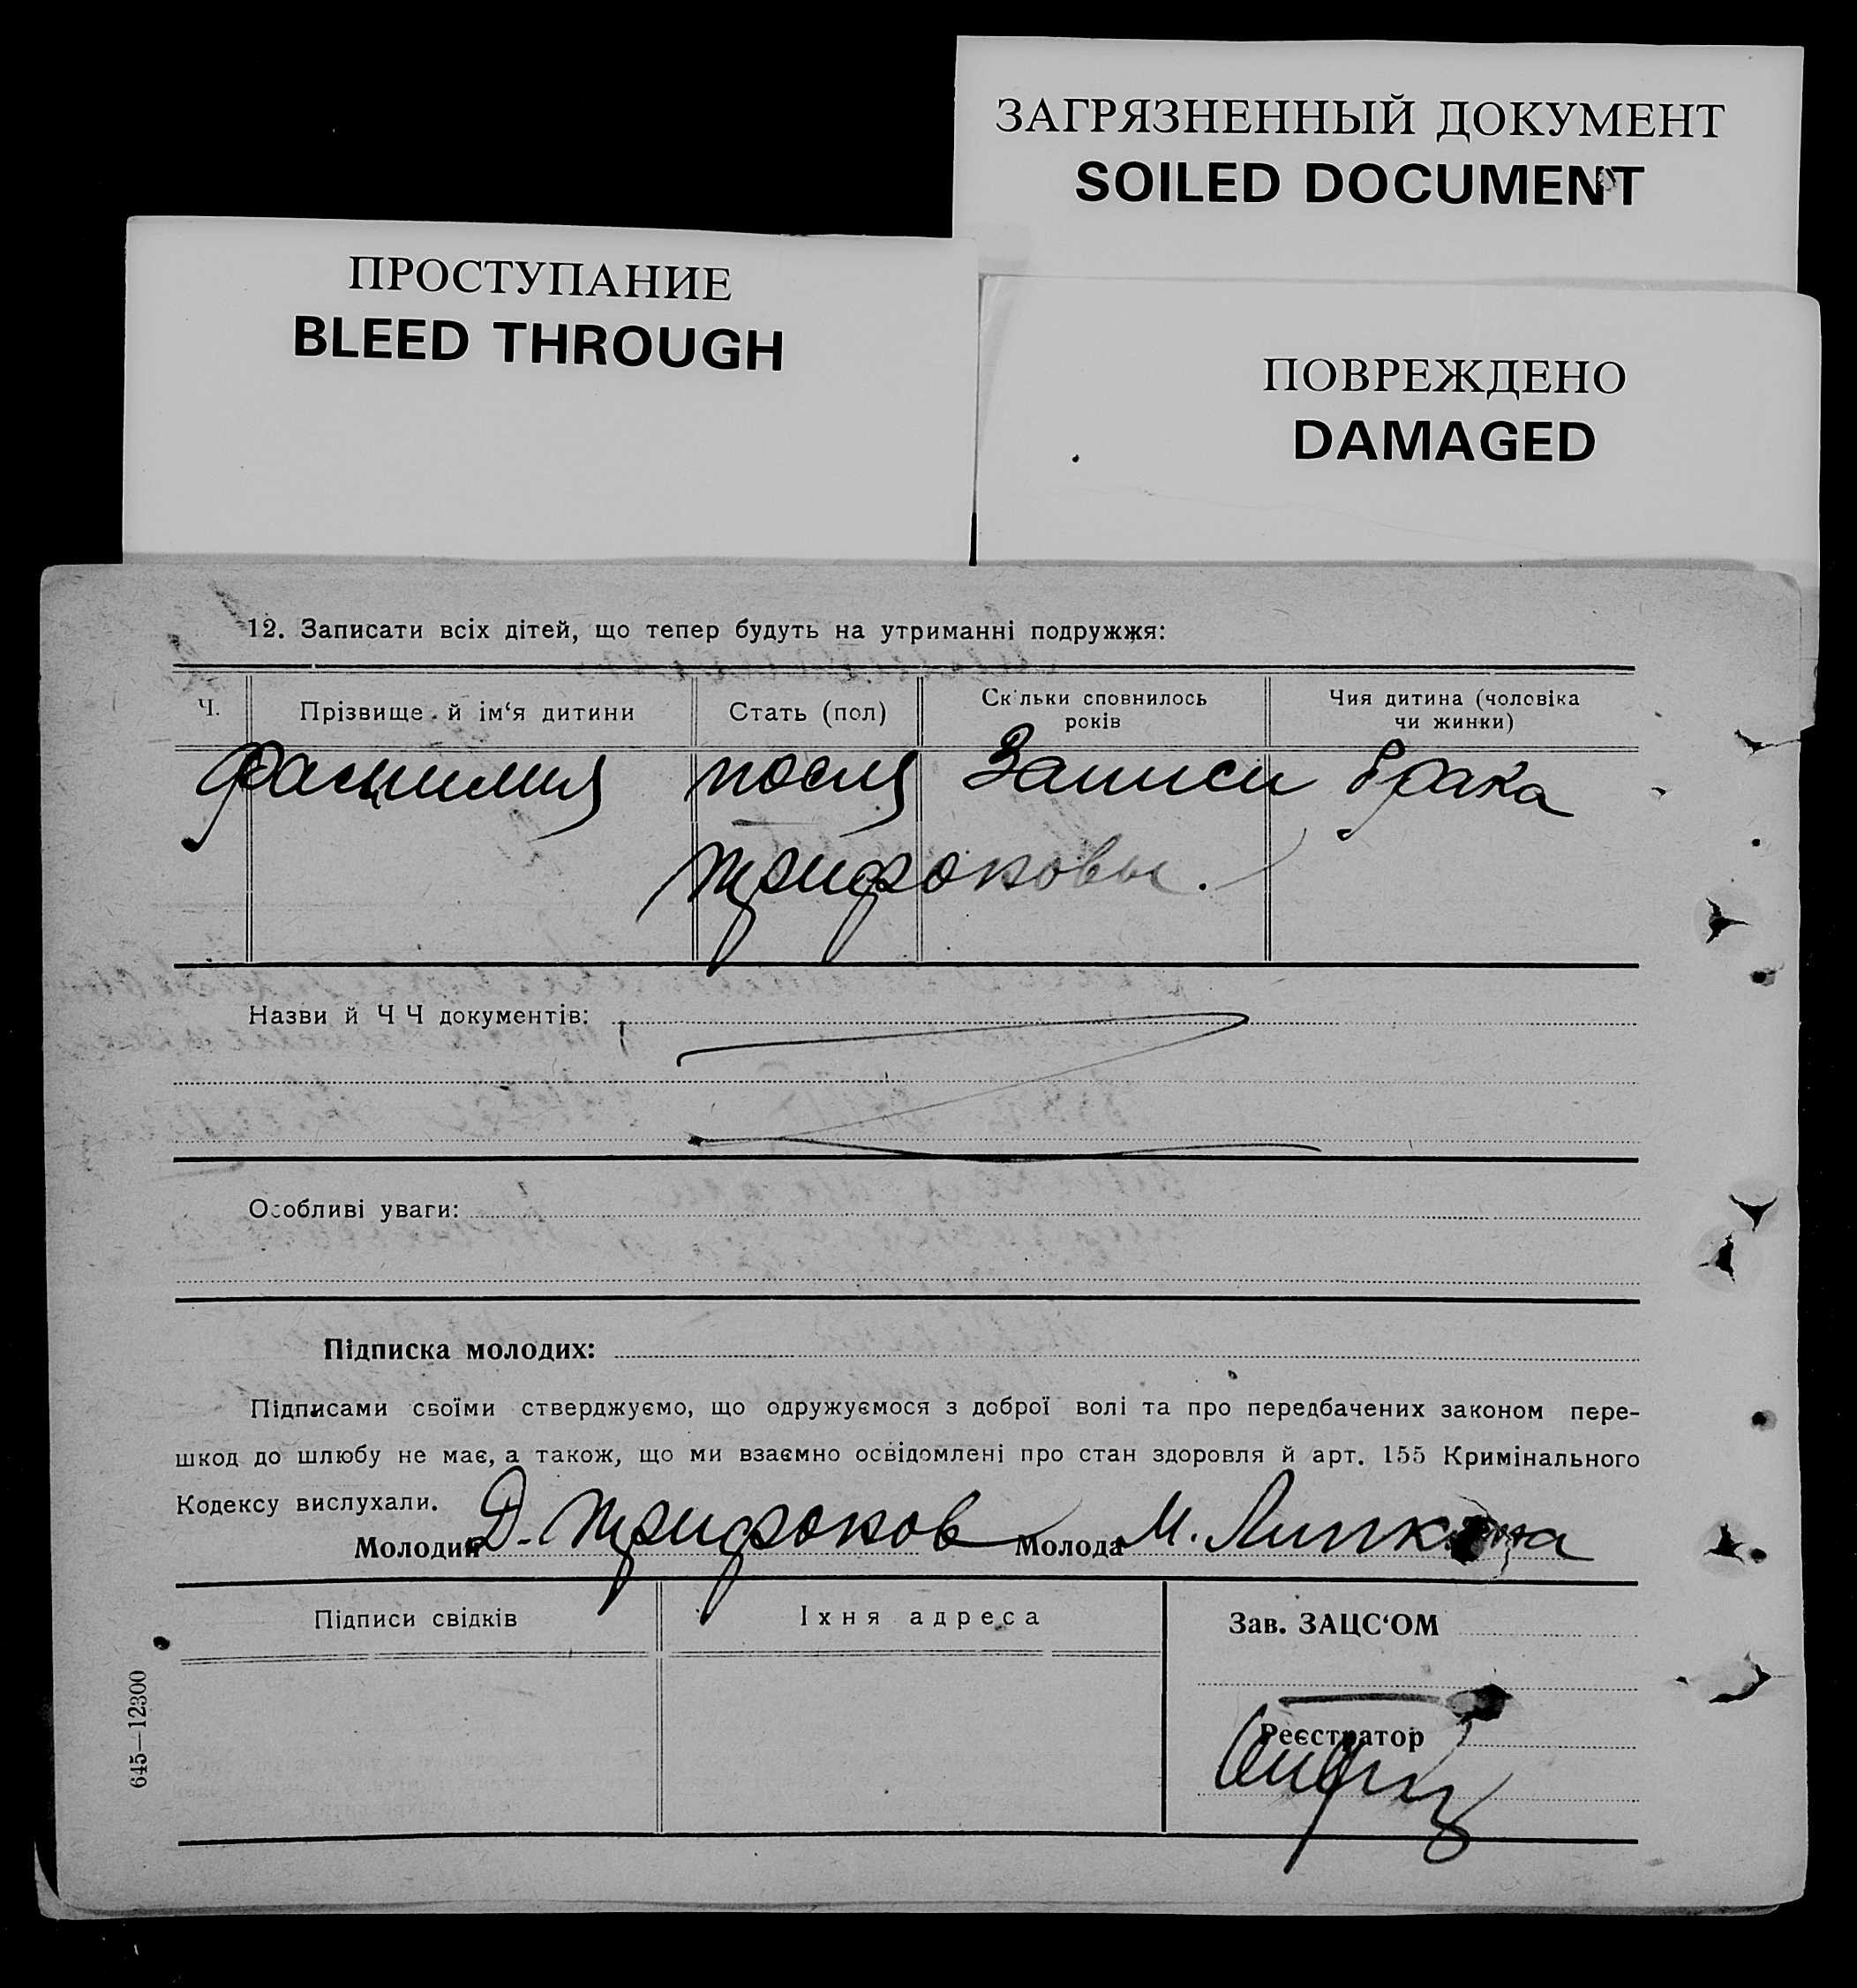 ЗАГРЯЗНЕННЫЙ ДОКУМЕНТ
SOILED DOCUMENT
ПРОСТУПАНИЕ
BLEED THROUGH
ПОВРЕЖДЕНО
DAMAGED
12. Записати всіх дітей, що тепер будуть на утриманні подружжя:
Ч.
Прізвище й ім‘я дитини
Стать (пол)
Скільки сповнилось
років
Чия дитина (чоловіка
чи жинки)
Фамилия после Записи брака
Трифоновы.
Назви й Ч Ч документів:
Особливі уваги:
Підписка молодих:
Підписами своїми стверджуємо, що одружуємося з доброї волі та про передбачених законом пере-
шкод до шлюбу не має, а також, що ми взаємно освідомлені про стан здоровля й арт. 155 Кримінального
Кодексу вислухали.
Молодий Д. Трифонов Молода М. Липкина
Підписи свідків
Їхня адреса
Зав. ЗАЦС‘ОМ
Реєстратор
645—12300